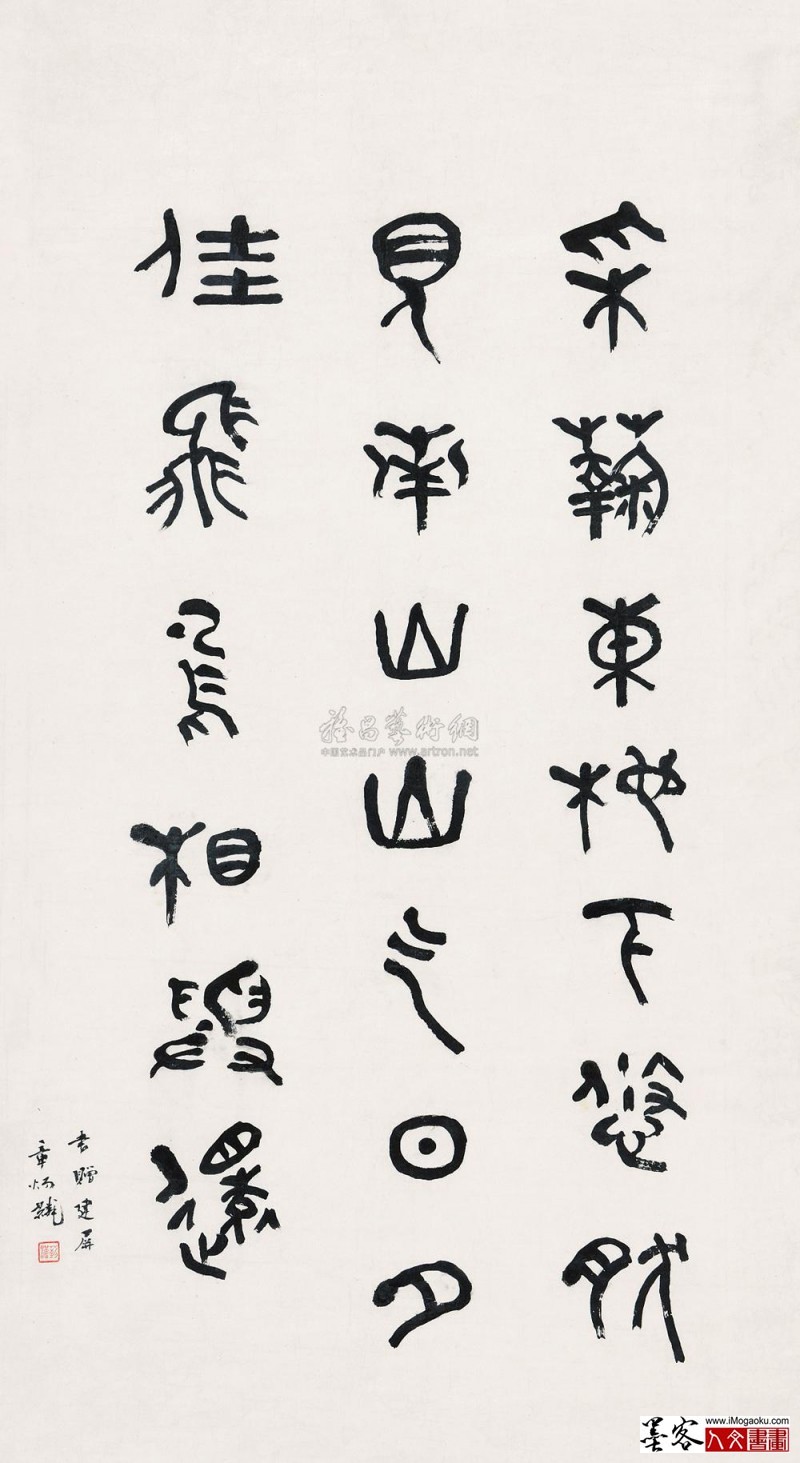 采蘜東杝下悠肰
見南山山气日夕
佳飛鳥相與還
書贈建屏
章炳麟
雅昌藝術網
中国艺术品门户 www.artron.net
www.iMogaoku.com
墨客人文書畫